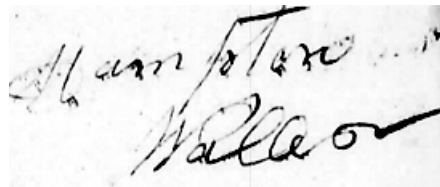 Hampton
Wallace